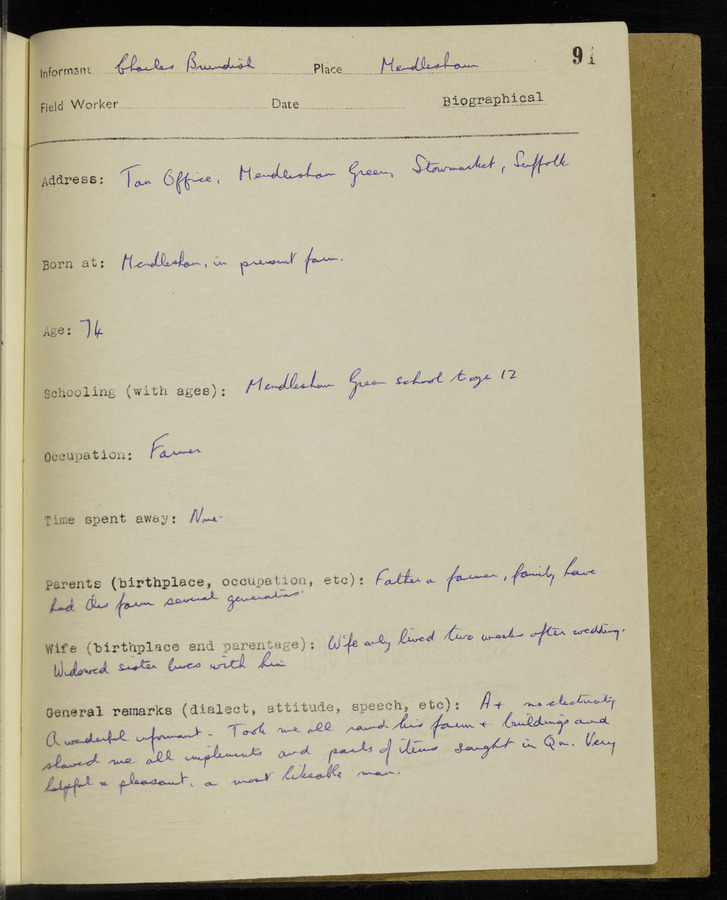 Informant Charles Brundish Place Mendlesham 91
Field Worker Date Biographical
Address: Tan Office, Mendlesham Green, Stowmarket, Suffolk
Born at: Mendlesham, in present farm.
Age: 74
Schooling (with ages): Mendlesham Green school to age 12
Occupation: Farmer
Time spent away: None
Parents (birthplace, occupation, etc): Father a farmer, family have
had this farm several generations.
Wife (birthplace and parentage): Wife only lived two weeks after wedding.
Widowed sister lives with him
General remarks (dialect, attitude, speech, etc): A+ no electricity
A wonderful informant - Took me all round his farm + buildings and
showed me all implements and parts of items sought in Qn. Very
helpful + pleasant, a most likeable man.